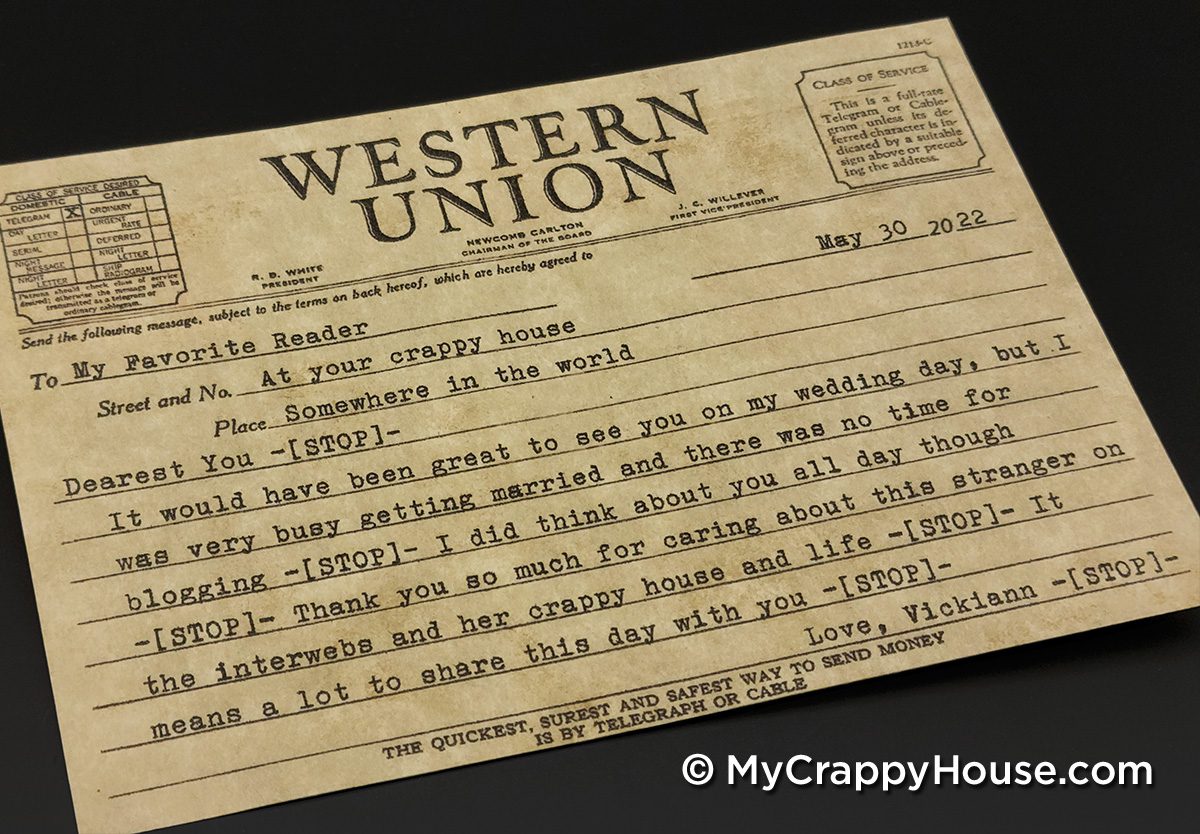 1213-C
CLASS OF SERVICE DESIRED
DOMESTIC CABLE
TELEGRAM X ORDINARY
DAY LETTER URGENT RATE
SERIAL DEFERRED
NIGHT MESSAGE NIGHT LETTER
NIGHT LETTER SHIP RADIOGRAM
Patrons should check class of service
desired; otherwise the message will be
transmitted as a telegram or
ordinary cablegram.
WESTERN
UNION
CLASS OF SERVICE
This is a full-rate
Telegram or Cable-
gram unless its de-
ferred character is in-
dicated by a suitable
sign above or preced-
ing the address.
R. B. WHITE
PRESIDENT
NEWCOMB CARLTON
CHAIRMAN OF THE BOARD
J. C. WILLEVER
FIRST VICE-PRESIDENT
Send the following message, subject to the terms on back hereof, which are hereby agreed to
May 30 2022
To My Favorite Reader
Street and No. At your crappy house
Place Somewhere in the world
Dearest You -[STOP]-
It would have been great to see you on my wedding day, but I
was very busy getting married and there was no time for
blogging -[STOP]- I did think about you all day though
-[STOP]- Thank you so much for caring about this stranger on
the interwebs and her crappy house and life -[STOP]- It
means a lot to share this day with you -[STOP]-
Love, Vickiann -[STOP]-
THE QUICKEST, SUREST AND SAFEST WAY TO SEND MONEY
IS BY TELEGRAPH OR CABLE
© MyCrappyHouse.com